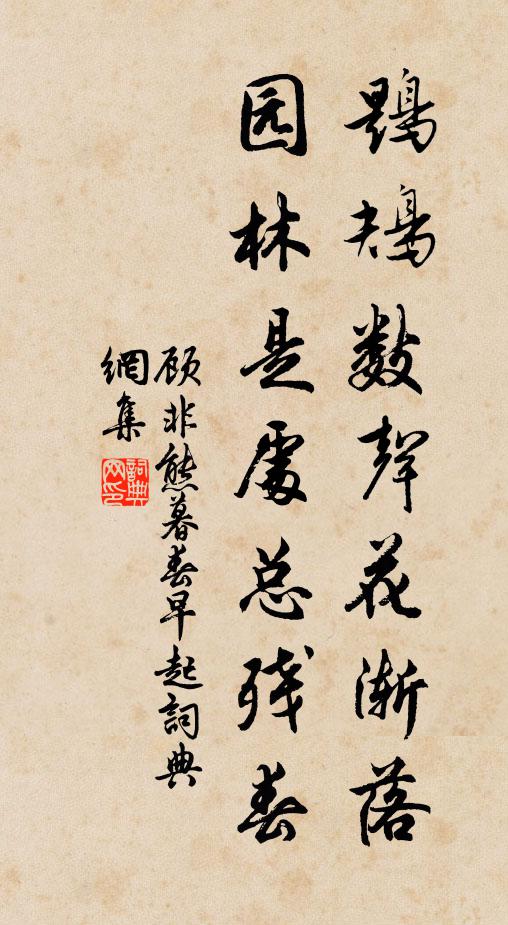 鶗鴂数聲花渐落
园林是處总残春
顾非熊暮春早起詞典
網集
詞典
网印